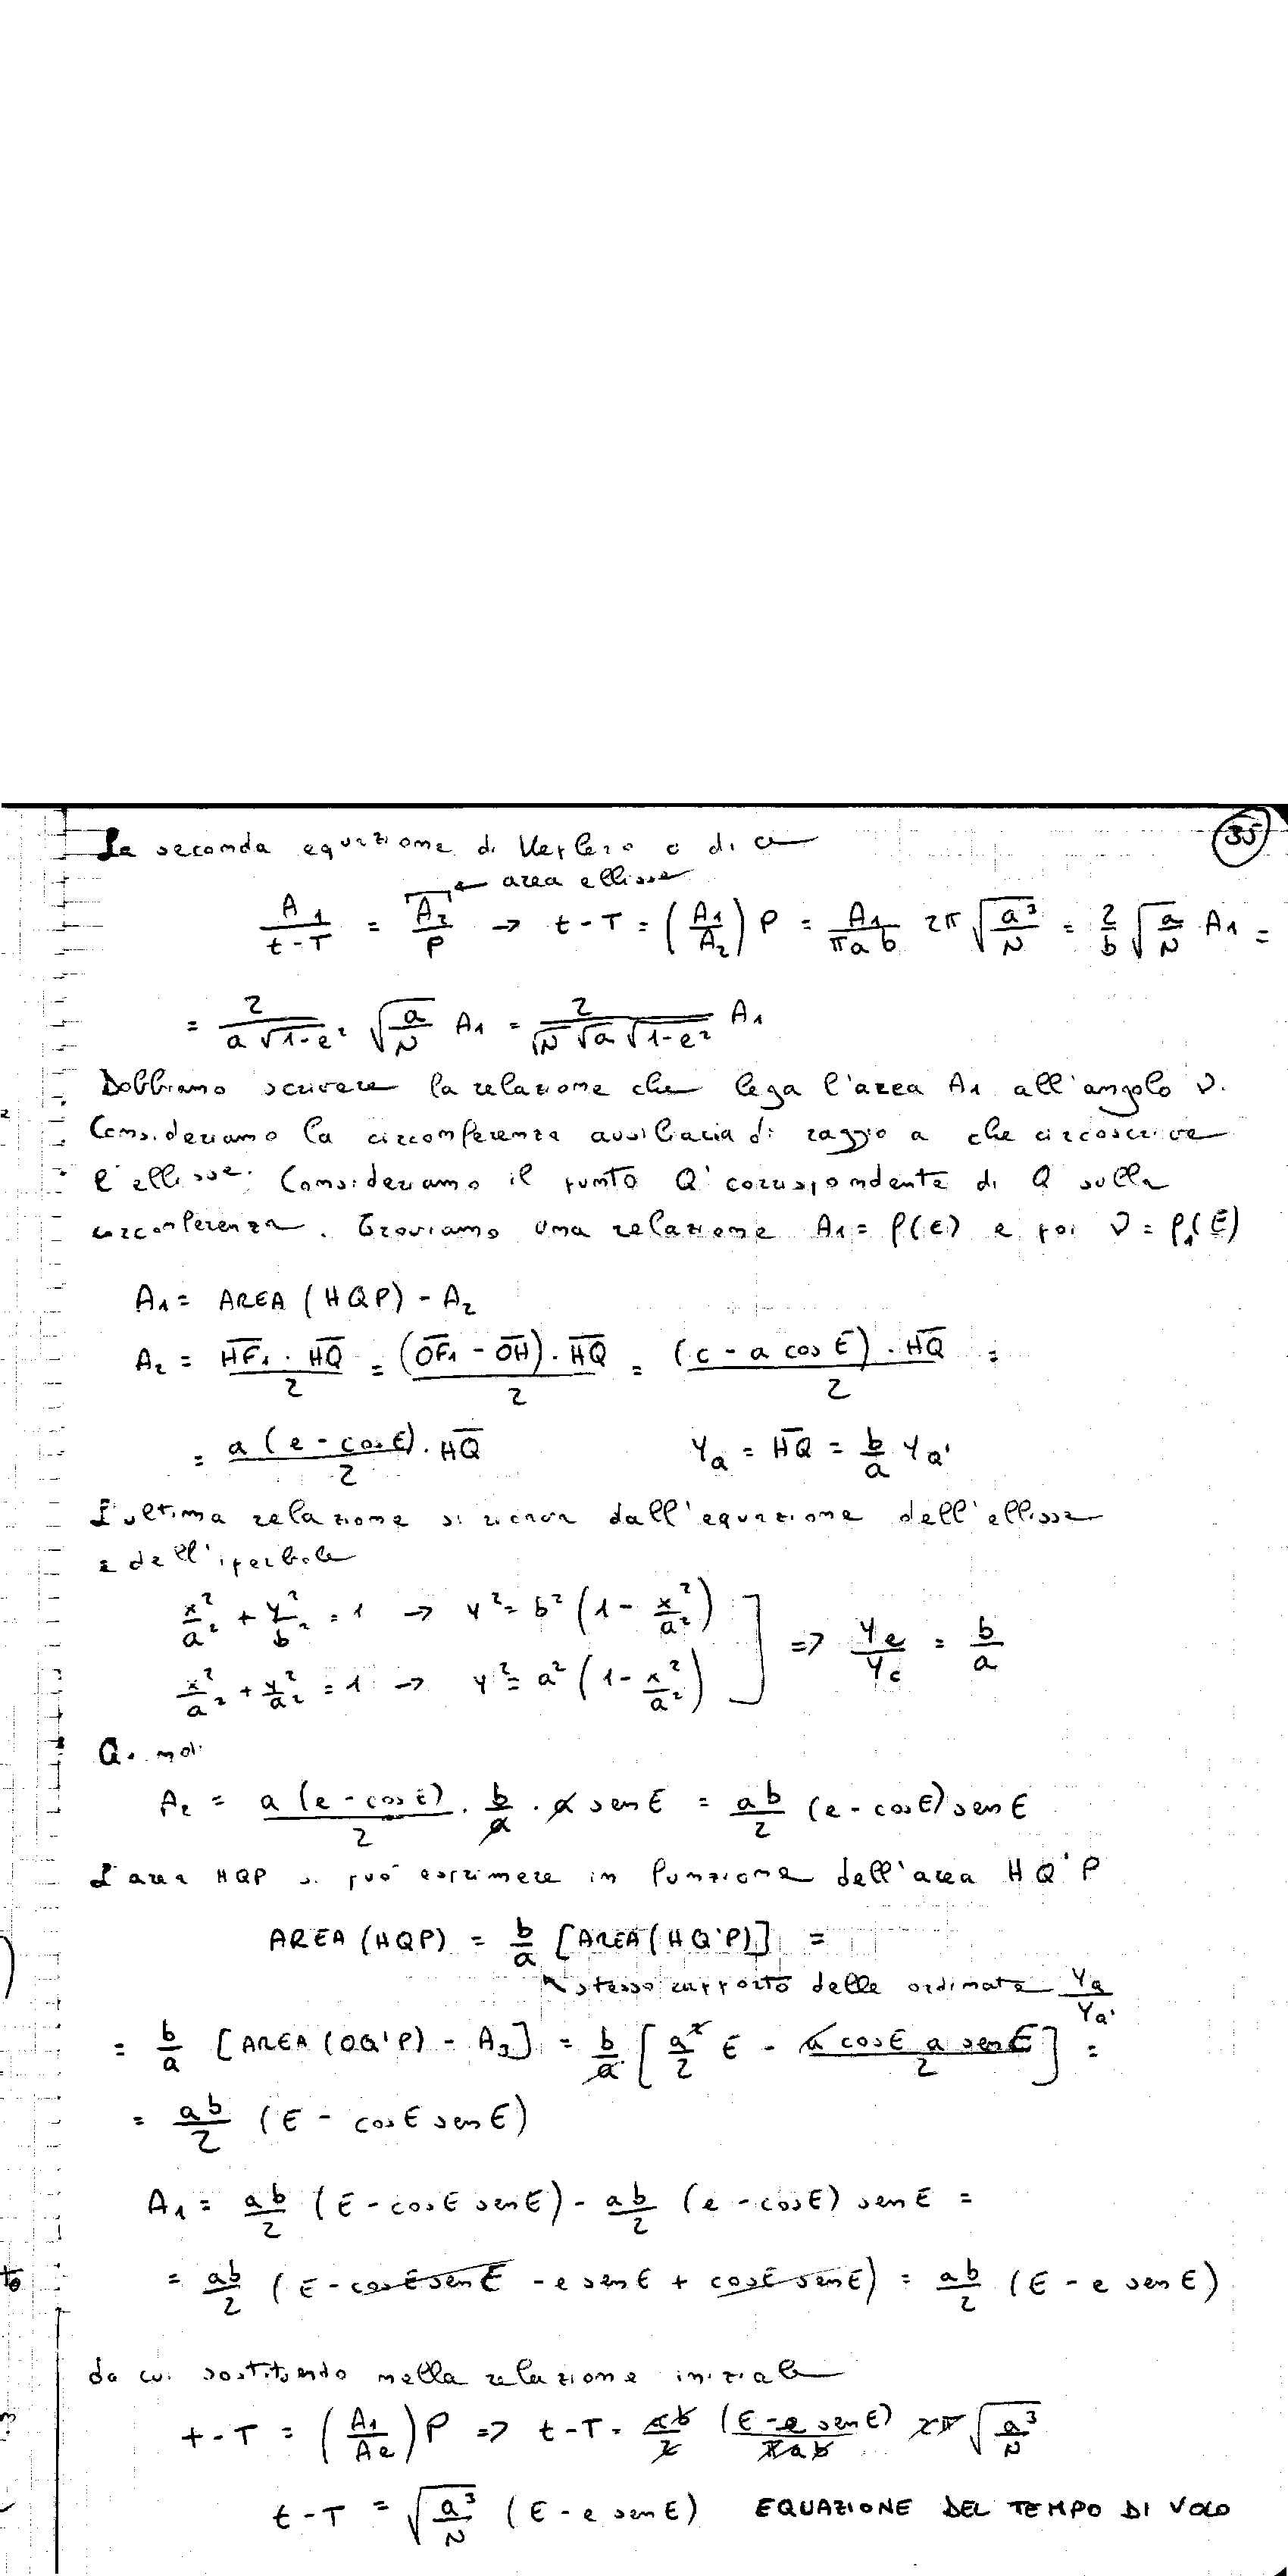 35
La seconda equazione di Keplero ci dice
← area ellisse
A1/(t-T) = A2/P → t-T = (A1/A2) P = A1/(πab) 2π √(a³/N) = 2/b √(a/N) A1 =
= 2/(a√(1-e²)) √(a/N) A1 = 2/(√N √a √(1-e²)) A1
Dobbiamo scrivere la relazione che lega l'area A1 all'angolo ν.
Consideriamo la circonferenza ausiliaria di raggio a che circoscrive
l'ellisse. Consideriamo il punto Q' corrispondente di Q sulla
circonferenza. Troviamo una relazione A1 = f(E) e poi ν = f1(E)
A1 = AREA (HQP) - A2
A2 = (HF1 · HQ)/2 = ((OF1 - OH) · HQ)/2 = ((c - a cos E) · HQ)/2 =
= (a (e - cosE) · HQ)/2 YQ = HQ = b/a YQ'
L'ultima relazione si ricava dall'equazione dell'ellisse
e dell'iperbole
x²/a² + y²/b² = 1 → y² = b² (1 - x²/a²)
x²/a² + y²/a² = 1 → y² = a² (1 - x²/a²) ] => Ye/Yc = b/a
Quindi
A2 = (a (e - cosE))/2 · b/a · a senE = ab/2 (e - cosE) senE
L'area HQP si può esprimere in funzione dell'area HQ'P
AREA (HQP) = b/a [AREA (HQ'P)] =
↖ stesso rapporto delle ordinate YQ/YQ'
= b/a [AREA (OQ'P) - A3] = b/a [a²/2 E - (a cosE a senE)/2] =
= ab/2 (E - cosE senE)
A1 = ab/2 (E - cosE senE) - ab/2 (e - cosE) senE =
= ab/2 (E - cosE senE - e senE + cosE senE) = ab/2 (E - e senE)
da cui sostituendo nella relazione iniziale
t-T = (A1/Ae) P => t-T = ab/2 (E - e senE)/(πab) 2π √(a³/N)
t-T = √(a³/N) (E - e senE) EQUAZIONE DEL TEMPO DI VOLO